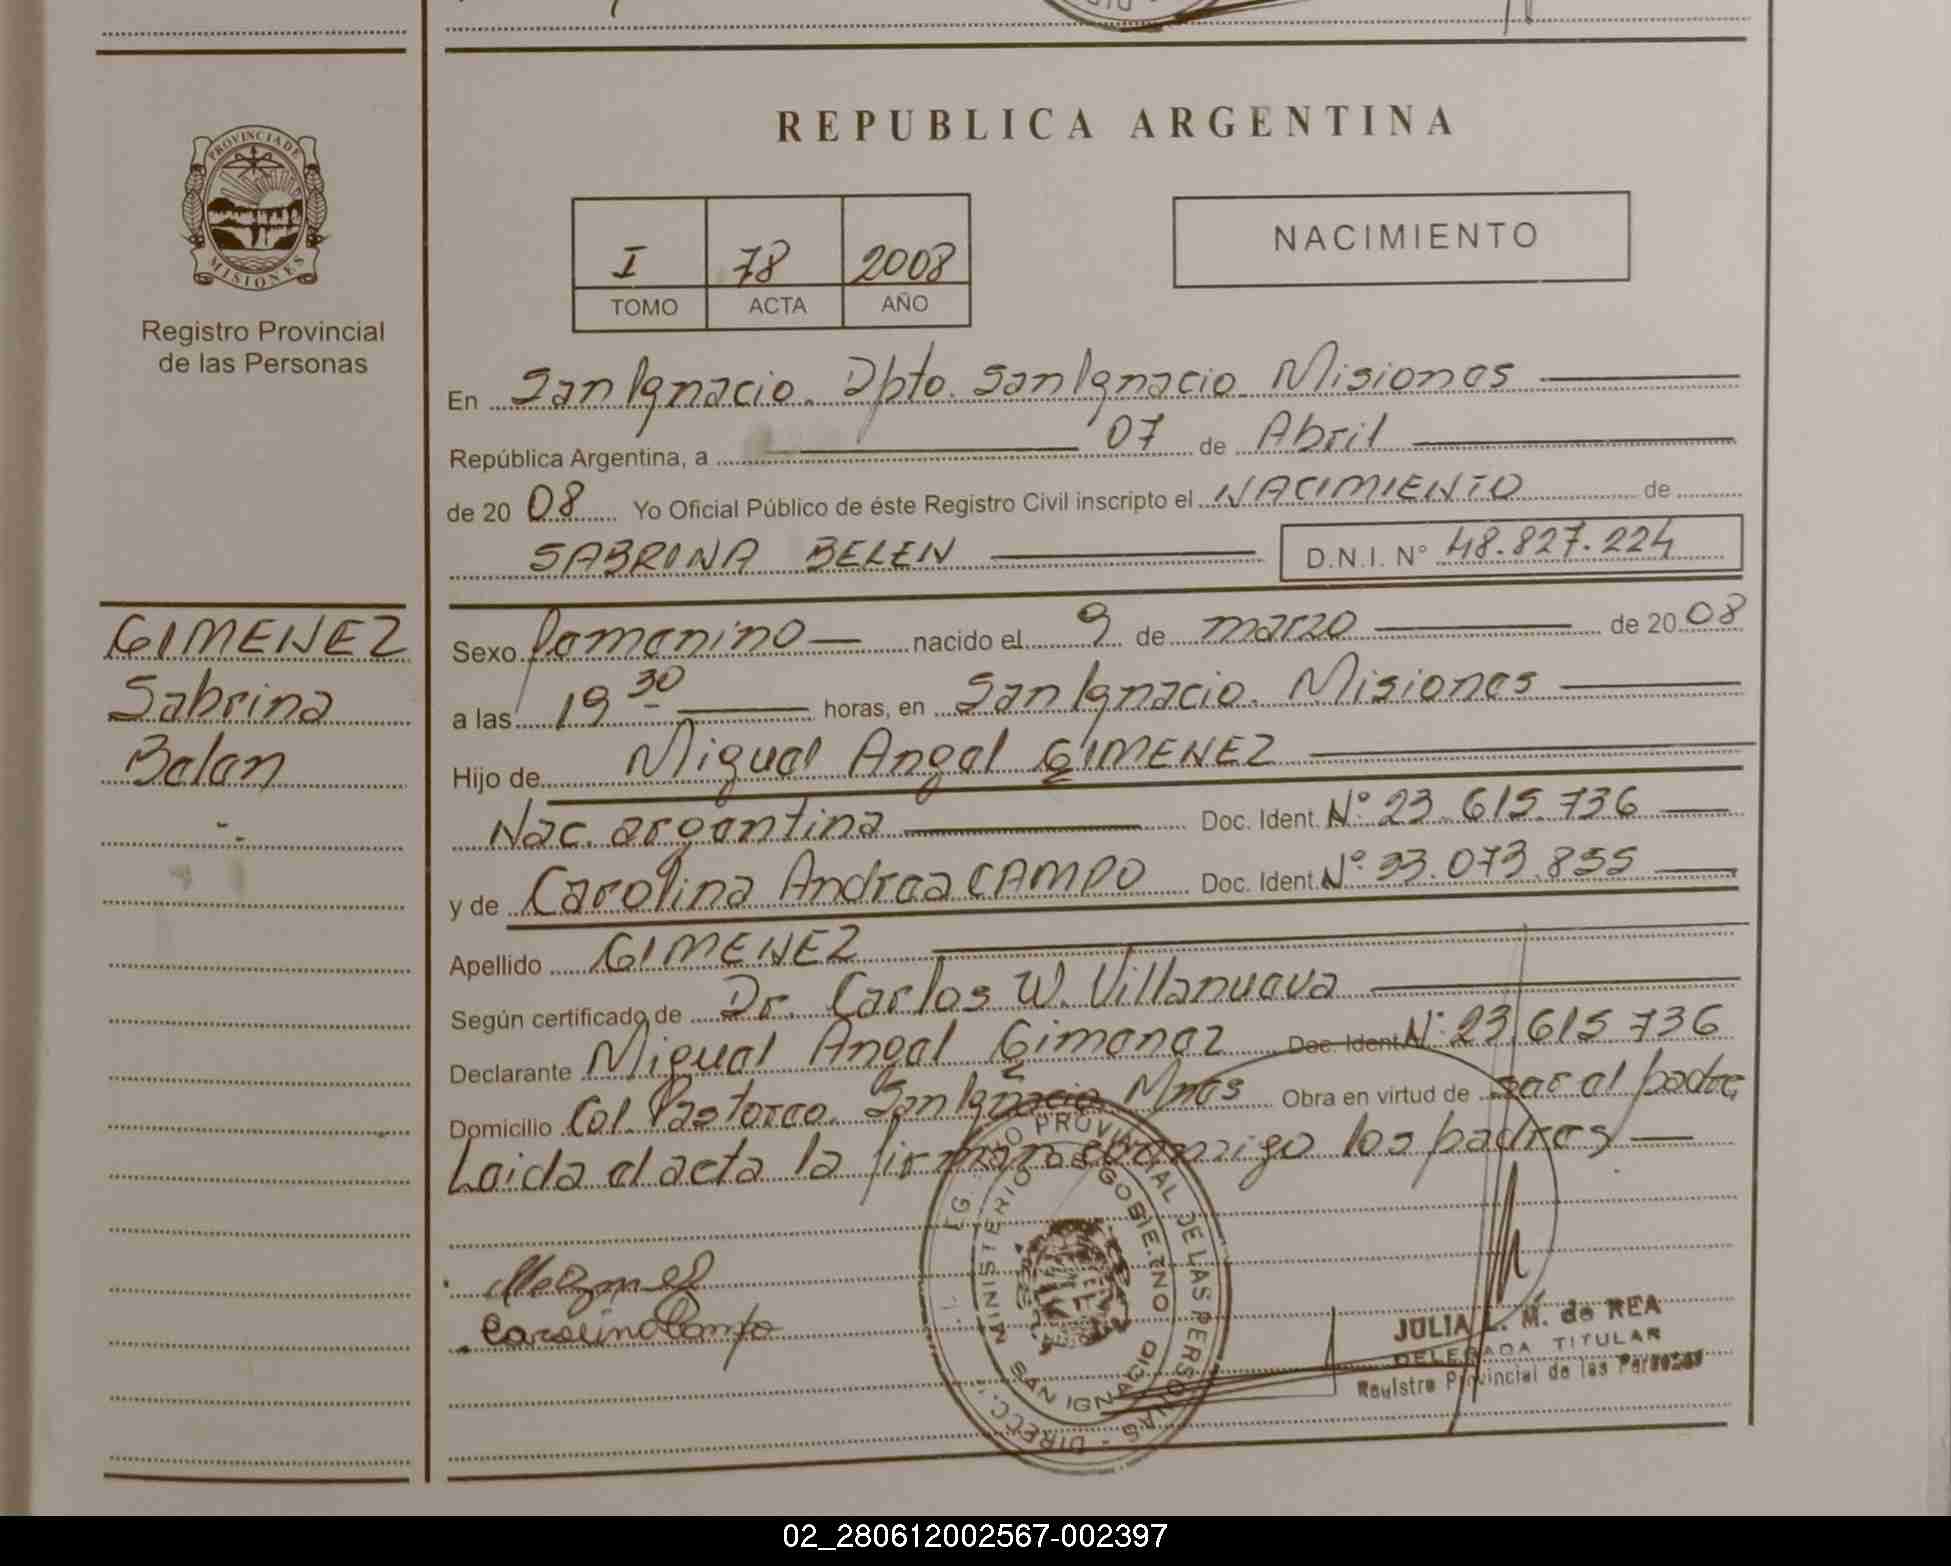 PROVINCIA DE
MISIONES
Registro Provincial
de las Personas
GIMENEZ
Sabrina
Belen
REPUBLICA ARGENTINA
I 78 2008
TOMO ACTA AÑO
NACIMIENTO
En San Ignacio. Dpto. San Ignacio Misiones
República Argentina, a 07 de Abril
de 20 08 Yo Oficial Público de éste Registro Civil inscripto el NACIMIENTO de
SABRINA BELEN D.N.I. N° 48.827.224
Sexo femenino nacido el 9 de marzo de 20 08
a las 19 30 horas, en San Ignacio. Misiones
Hijo de Miguel Angel GIMENEZ
Nac. argentina Doc. Ident. N° 23.615.736
y de Carolina Andrea CAMPO Doc. Ident. N° 33.073.855
Apellido GIMENEZ
Según certificado de Dr. Carlos W. Villanueva
Declarante Miguel Angel Gimenez Doc. Ident N° 23.615 736
Domicilio Col. Pastoreo. San Ignacio Mnes Obra en virtud de ser el padre
Leida el acta la firman conmigo los padres
Carolina Campo
PROVINCIAL DE LAS PERSONAS - DIRECC.
MINISTERIO DE GOBIERNO
SAN IGNACIO
JULIA L. M. de REA
DELEGADA TITULAR
Registro Provincial de las Personas
02_280612002567-002397